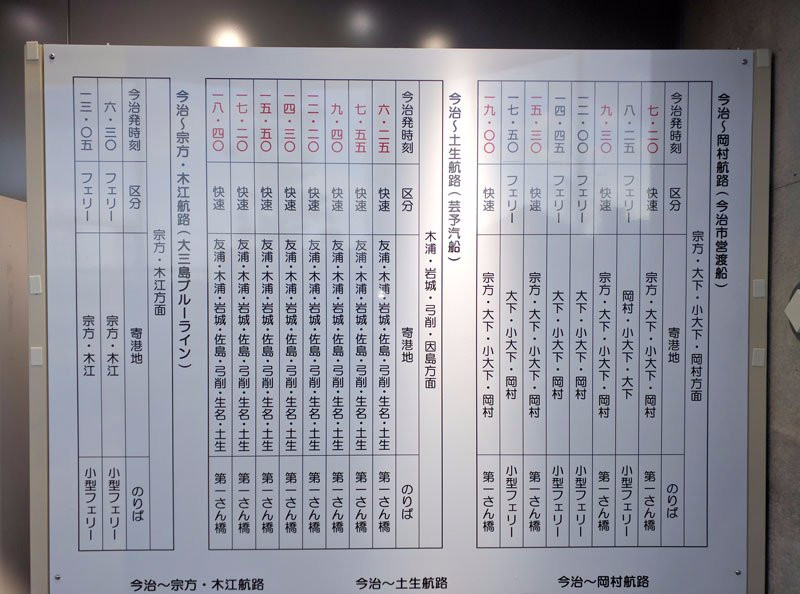 今治～岡村航路(今治市営渡船)
宗方・大下・小大下・岡村方面
今治発時刻 区分 寄港地 のりば
七・二〇 快速 宗方・大下・小大下・岡村 第一さん橋
八・二五 フェリー 岡村・小大下・大下 小型フェリー
九・三〇 快速 宗方・大下・小大下・岡村 第一さん橋
一二・〇〇 フェリー 大下・小大下・岡村 小型フェリー
一四・四五 フェリー 大下・小大下・岡村 小型フェリー
一五・三〇 快速 宗方・大下・小大下・岡村 第一さん橋
一七・五〇 フェリー 大下・小大下・岡村 小型フェリー
一九・〇〇 快速 宗方・大下・小大下・岡村 第一さん橋
今治～土生航路(芸予汽船)
木浦・岩城・弓削・因島方面
今治発時刻 区分 寄港地 のりば
六・二五 快速 友浦・木浦・岩城・佐島・弓削・生名・土生 第一さん橋
七・五五 快速 友浦・木浦・岩城・佐島・弓削・生名・土生 第一さん橋
九・四〇 快速 友浦・木浦・岩城・佐島・弓削・生名・土生 第一さん橋
一二・二〇 快速 友浦・木浦・岩城・佐島・弓削・生名・土生 第一さん橋
一四・三〇 快速 友浦・木浦・岩城・佐島・弓削・生名・土生 第一さん橋
一五・五〇 快速 友浦・木浦・岩城・佐島・弓削・生名・土生 第一さん橋
一七・二〇 快速 友浦・木浦・岩城・佐島・弓削・生名・土生 第一さん橋
一八・四〇 快速 友浦・木浦・岩城・佐島・弓削・生名・土生 第一さん橋
今治～宗方・木江航路(大三島ブルーライン)
宗方・木江方面
今治発時刻 区分 寄港地 のりば
六・三〇 フェリー 宗方・木江 小型フェリー
一三・〇五 フェリー 宗方・木江 小型フェリー
今治～宗方・木江航路 今治～土生航路 今治～岡村航路